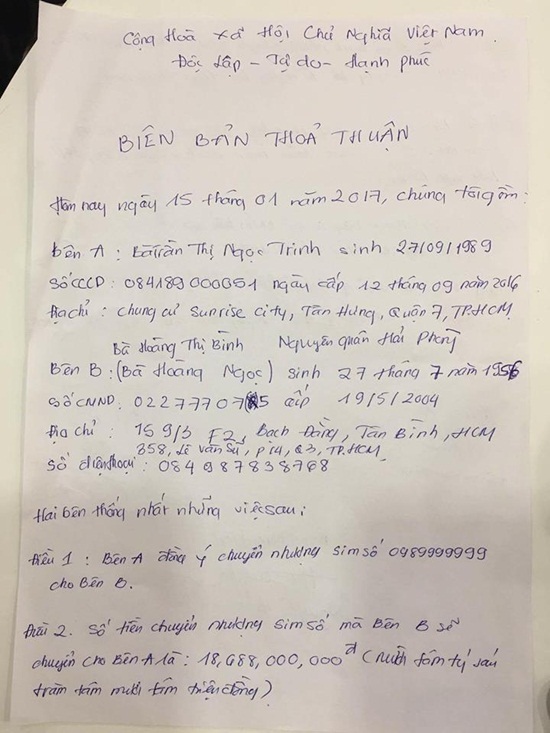 Cộng Hoà Xã Hội Chủ Nghĩa Việt Nam.
Độc Lập - Tự do - Hạnh phúc
BIÊN BẢN THOẢ THUẬN
Hôm nay ngày 15 tháng 01 năm 2017, chúng tôi gồm:
Bên A : Bà Trần Thị Ngọc Trinh sinh 27/09/1989
Số CCCD : 084189000051 ngày cấp 12 tháng 09 năm 2016
Địa chỉ : chung cư Sunrise city, Tân Hưng, Quận 7, TP.HCM
Bà Hoàng Thị Bình Nguyên quán Hải Phòng
Bên B : (Bà Hoàng Ngọc) sinh 27 tháng 7 năm 1956
Số CMND : 02277707 5 cấp 19/5/2004
Địa chỉ : 159/3 F2, Bạch Đằng, Tân Bình, HCM
358, Lê Văn Sỹ, P14, Q3, TP.HCM
Số điện thoại : 084 987838768
Hai bên thống nhất những việc sau:
Điều 1 : Bên A đồng ý chuyển nhượng sim số 0989999999
cho Bên B.
Điều 2. Số tiền chuyển nhượng sim số mà Bên B sẽ
chuyển cho Bên A là : 18,688,000,000đ (Mười tám tỷ sáu
trăm tám mươi tám triệu đồng)